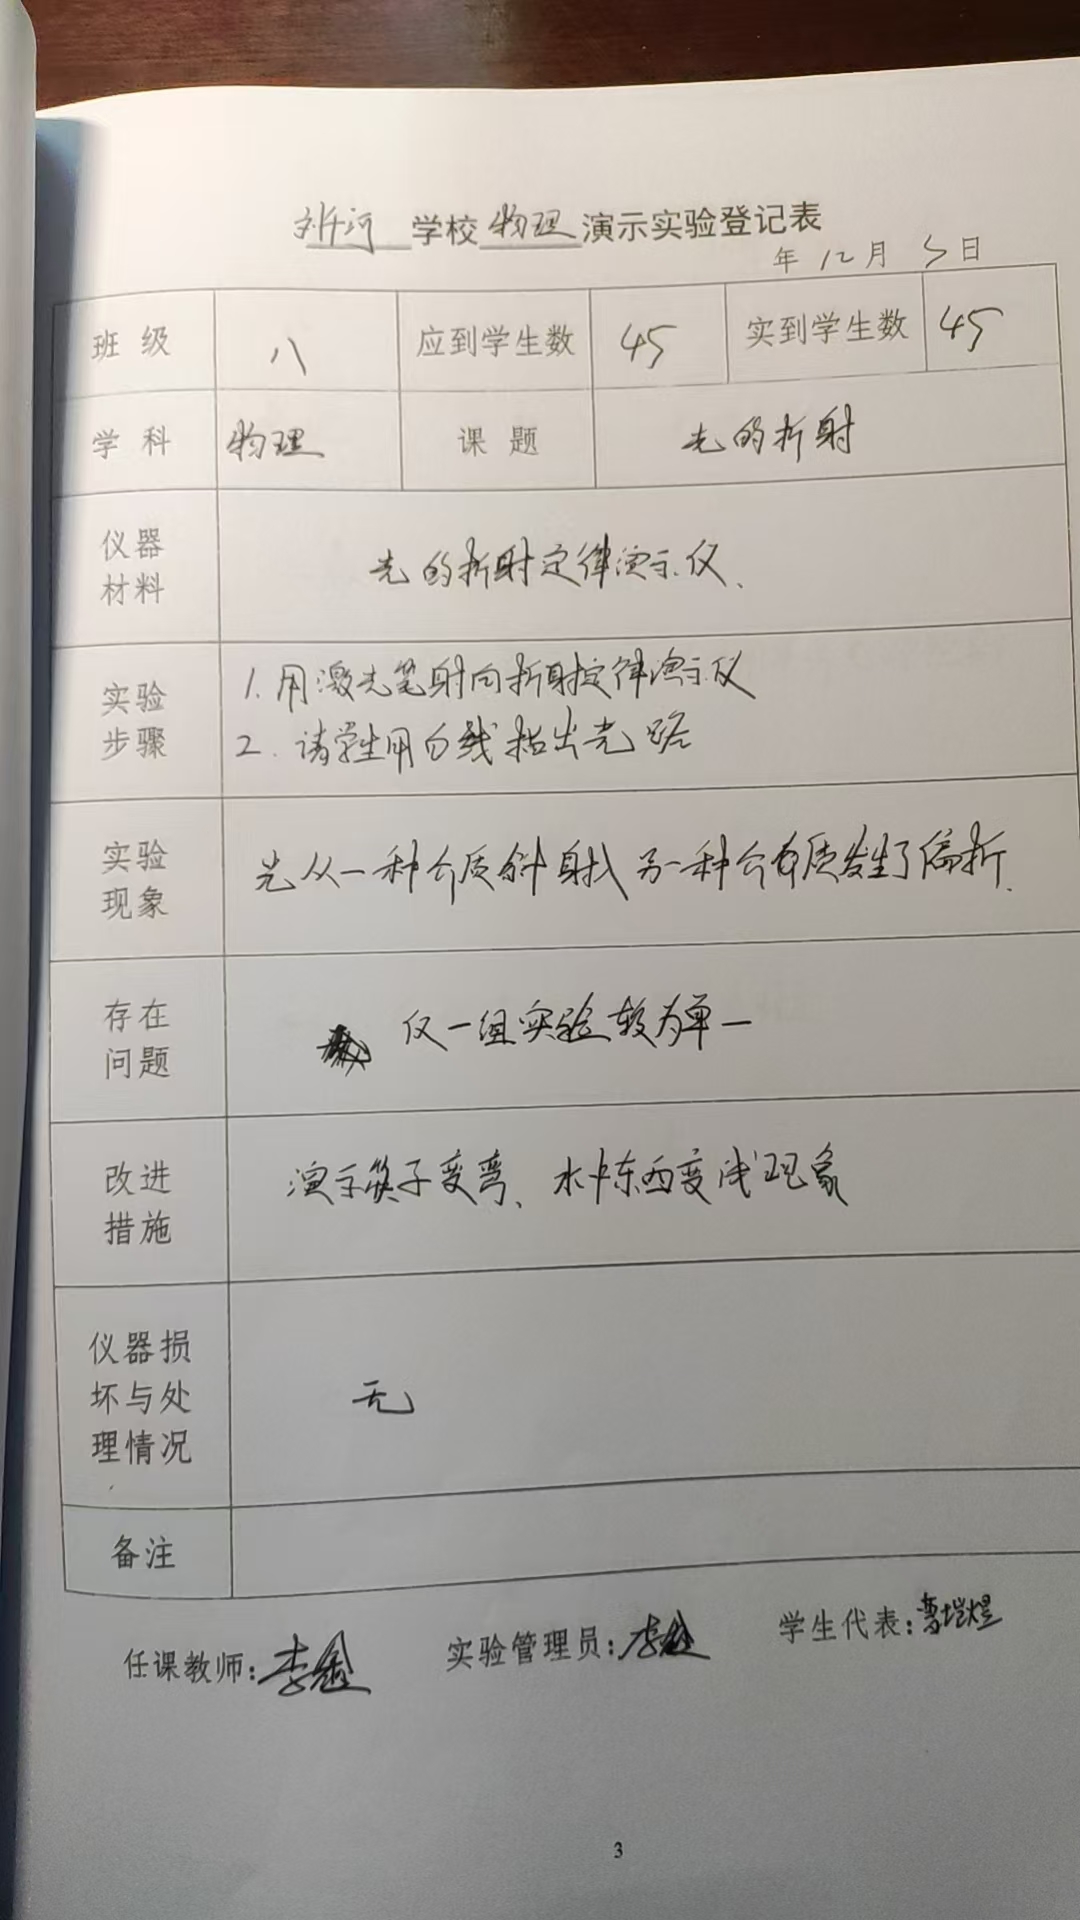 学校 物理 演示实验登记表
年 12月 5日
班级 八 应到学生数 45 实到学生数 45
学科 物理 课题 光的折射
仪器
材料
光的折射定律演示仪、
实验
步骤
1. 用激光笔射向折射定律演示仪
2. 请学生用白线指出光路
实验
现象
光从一种介质斜射入另一种介质发生了偏折.
存在
问题
仅一组实验较为单一
改进
措施
演示筷子变弯、水中东西变浅现象
仪器损
坏与处
理情况
无
备注
任课教师: 李 实验管理员: 李 学生代表:
3